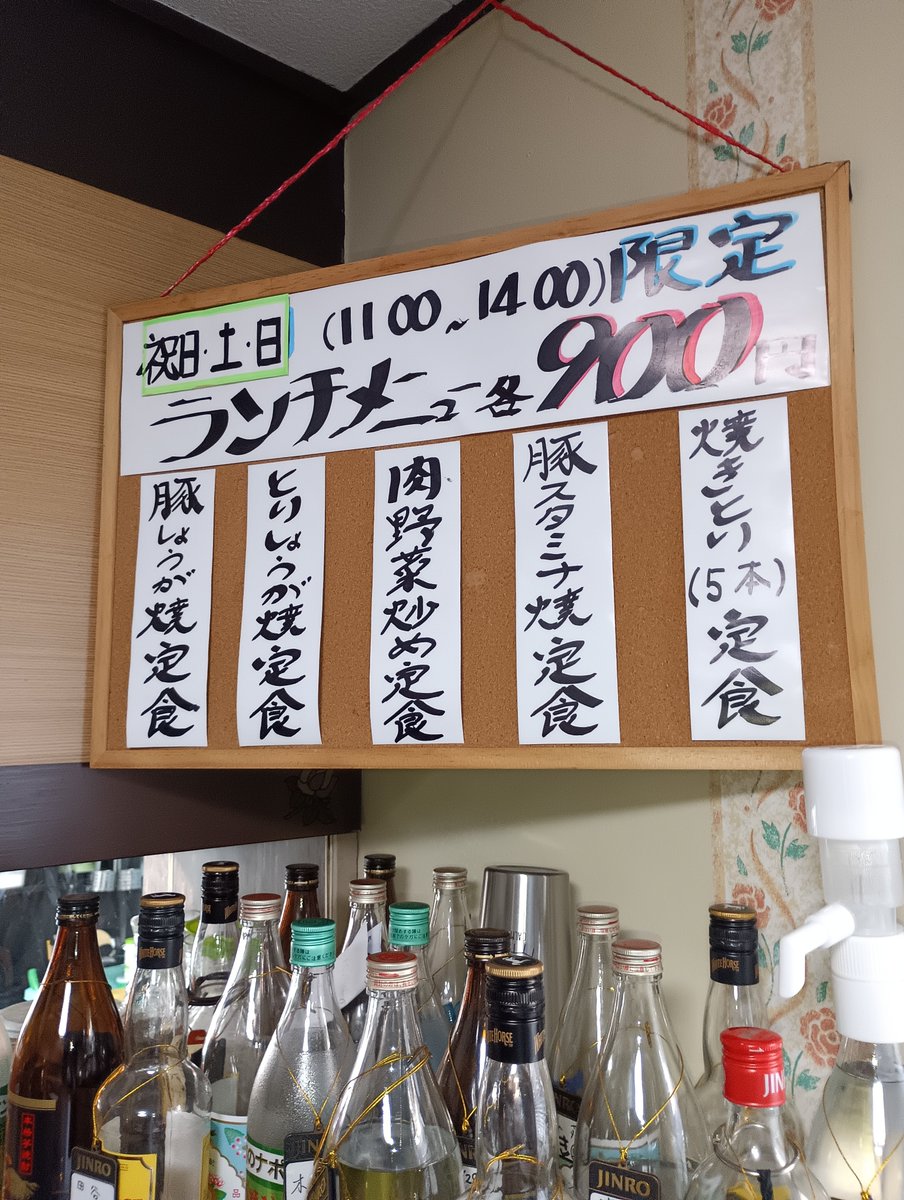 祝日・土・日 (1100~1400)限定
ランチメニュー各900円
焼きとり(5本)定食
豚スタミナ焼定食
肉野菜炒め定食
とりしょうが焼定食
豚しょうが焼定食
WHITE HORSE
JINRO
JINRO
JINRO
本格芋焼酎